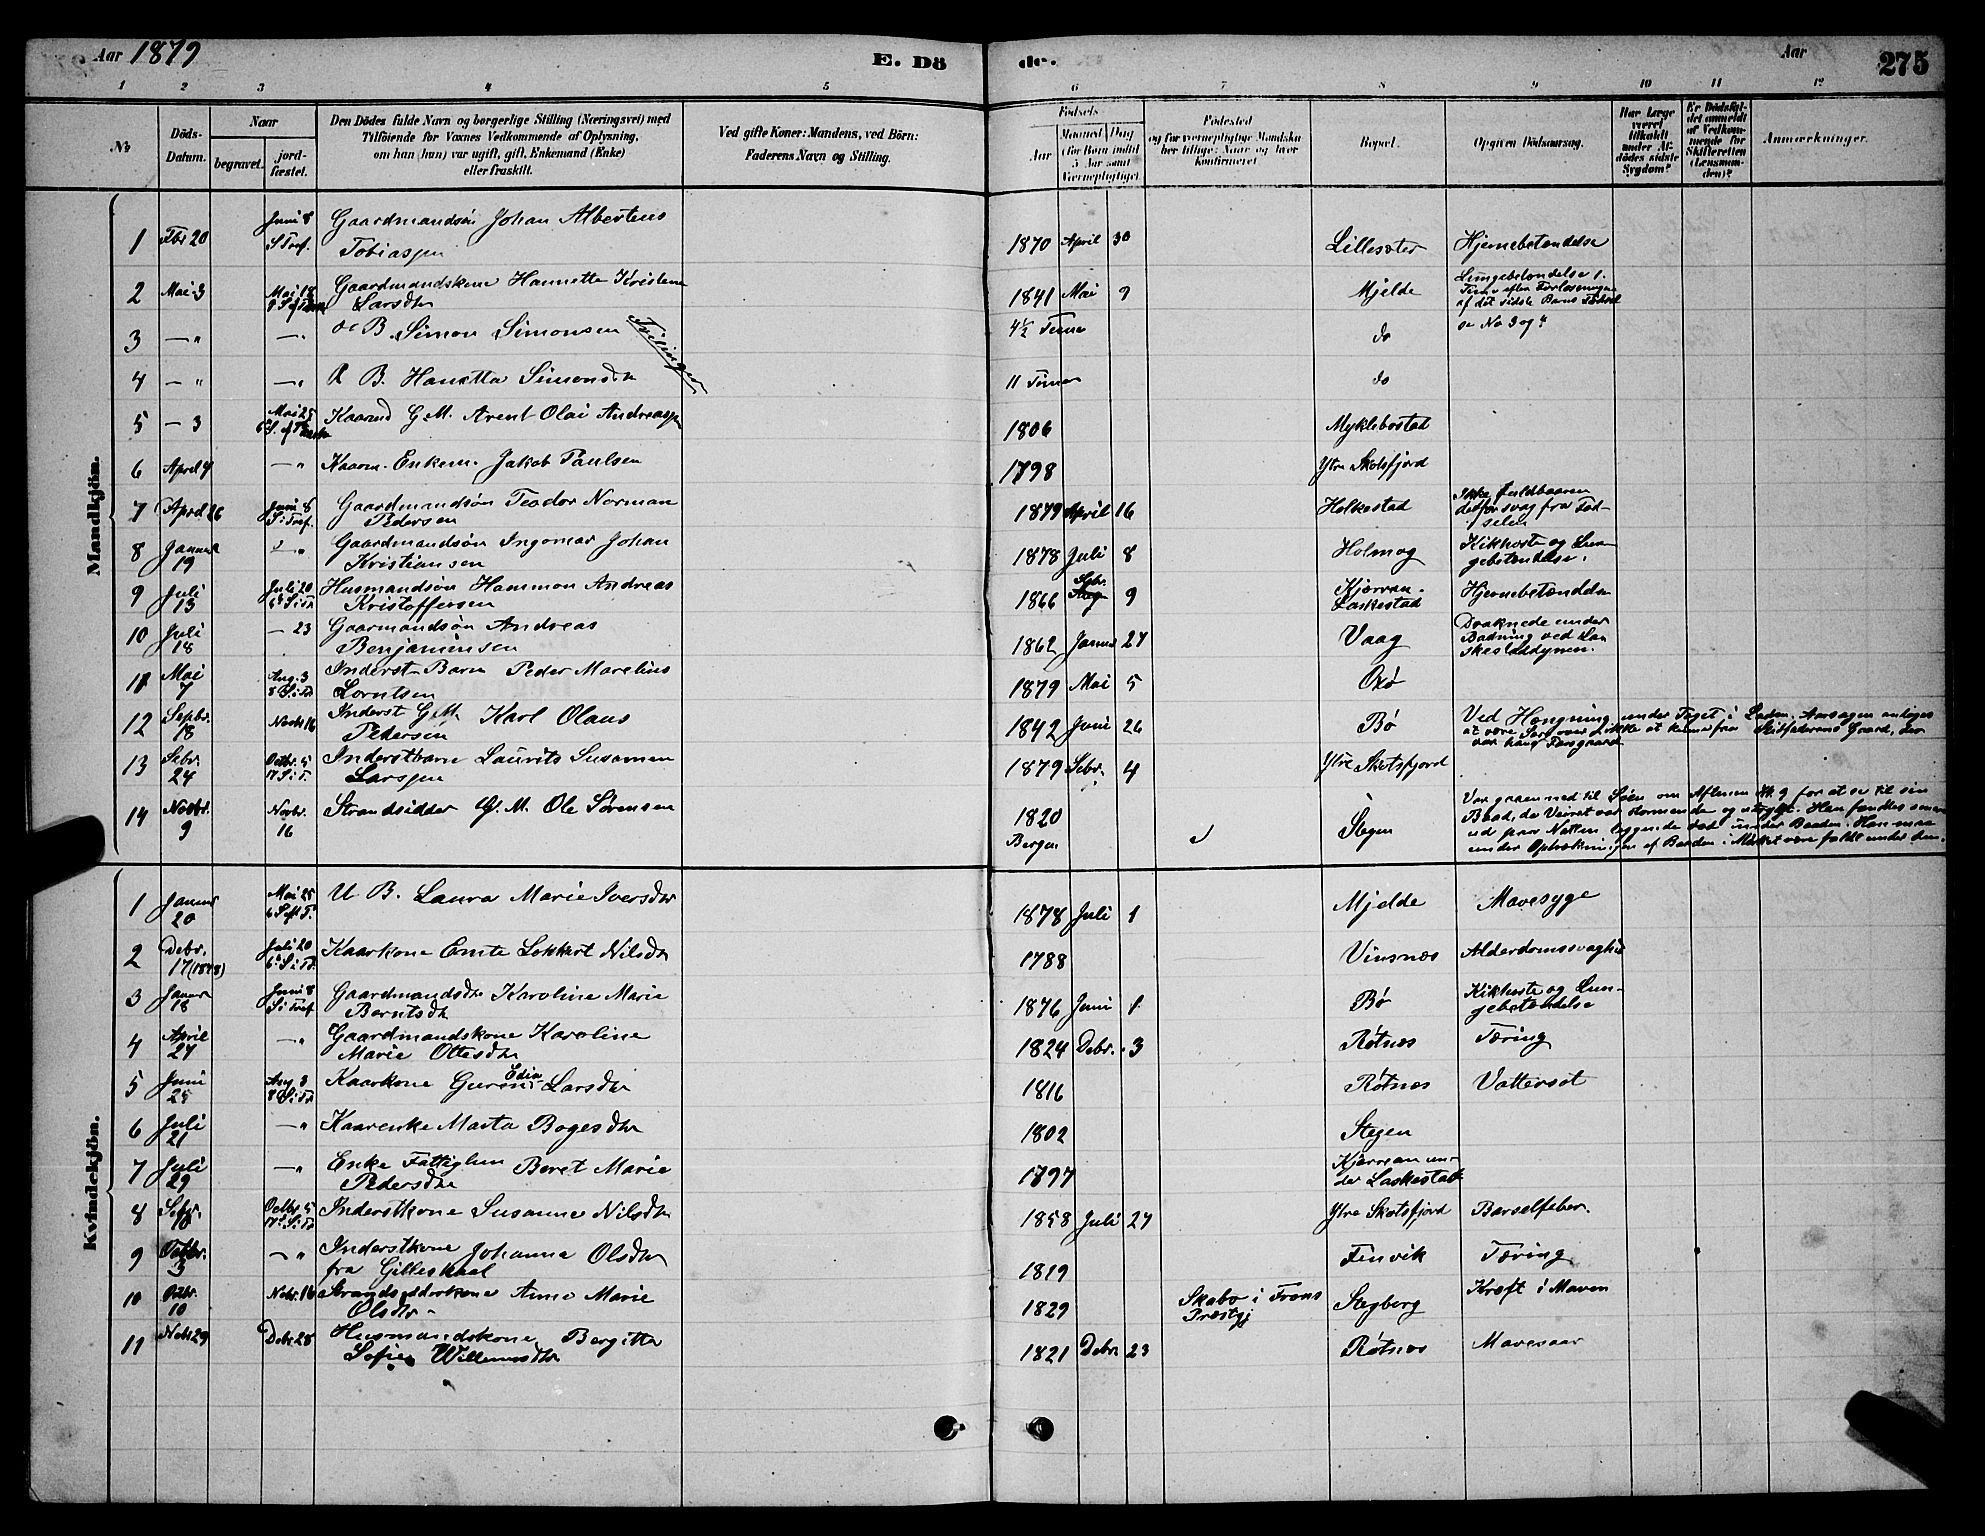 Aar 1879
E. Dö
de.
Aar
275
1 2 3 4 5 6 7 8 9 10 11 12
No
Döds-
Datum.
Naar
begravet.
jord-
fæstet.
Den Dödes fulde Navn og borgerlige Stilling (Næringsvei) med
Tilföiende for Voxnes Vedkommende af Oplysning,
om han (hun) var ugift, gift, Enkemand (Enke)
eller fraskilt.
Ved gifte Koner: Mandens, ved Börn:
Faderens Navn og Stilling.
Födsels
Aar
Maaned
Dag
(for Barn indtil
5 Aar samt
Værnepligtige).
Födested
og for værnepligtige Mandska-
ber tillige: Naar og hvor
Konfirmeret
Bopæl.
Opgiven Dödsaarsag.
Har Læge
været
tilkaldt
under Af-
dödes sidste
Sygdom?
Er Dödsfal-
det anmeldt
af Vedkom-
mende for
Skifteretten
(Lensman-
den)?
Anmærkninger.
Mandkjön.
1 Fbr 20 Juni 8 S. Tref. Gaardmandsön Johan Albertens
Tobiassen 1870 April 30 Lillesæter Hjernebetændelse
2 Mai 3 Mai 18 Gaardmandskone Hannetta Kristena
Larsdtr 1841 Mai 9 Mjelde Lungebetændelse 1.
Time efter Forløsningen
af det sidste Barns Födsel
3 — " — " B. Simon Simonsen Tvilinger 4½ Time do se No 3 og 4
4 — " — " B. Hanetta Simonsdtr 11 Timer do
5 — 3 Mai 25 Kaarmd G.M. Arent Olai Andreassen 1806 Myklebostad
6 April 4 — " Kaarm. Enkem. Jakob Paulsen 1798 Ytre Skotsfjord
7 April 26 Juni 8 S. i Tref. Gaardmandsön Teodor Norman
Pedersen 1879 April 16 Holkestad Ikke fuldbaaren
derfor svag fra Föd-
selen
8 Januar 19 — " Gaardmandsön Ingomar Johan
Kristiansen 1878 Juli 8 Holmog Kikhoste og Lun-
gebetændelse.
9 Juli 13 Juli 20 6 S. i Tr. Husmandsön Hammon Andreas
Kristoffersen 1866 Sebr. 9 Kjørvan -
Laskestad Hjernebetændelse
10 Juli 18 — 23 Gaarmandsön Andreas
Benjaminsen 1862 Januar 27 Vaag Druknede under
Badning ved Las-
kestaddynen.
11 Mai 7 Aug. 3 8 S. i Tr. Inderst Barn Peder Marelius
Lorntsen 1879 Mai 5 Oxö
12 Sepbr. 18 Novbr 16 Inderst G.M. Karl Olaus
Pedersen 1842 Juni 26 Bö Ved Hængning under Taget i Laden. Aarsagen antages
at være Sorg over ikke at kunne fra Skilfaderens Gaard, der
var hans Farsgaard
13 Sebr. 24 Octbr. 5 17 S. i T. Inderstbarn Laurits Susamen
Larssen 1879 Sebr. 4 Ytre Skotsfjord
14 Novbr. 9 Novbr. 16 Strandsidder G. M. Ole Sørensen 1820
Bergen Stegen Var gaaen ned til Söen om Aftenen Kl. 9 for at se til sin
Baad, da Veiret var stormende og stygge. Han fandtes senere
ud paa Natten liggende död under Baaden. Han maa
under Optrækningen af Baaden i Mörket være faldt under den.
Kvindekjön.
1 Januar 20 Mai 25 U B. Laura Marie Iversdtr 1878 Juli 1 Mjelde Mavesyge
2 Debr. 17 (1878) Juli 20 6 S. i Tr. Kaarkone Emte Lokkert Nilsdtr 1788 Vinsnæs Alderdomssvaghed
3 Januar 18 Juni 8 S. i Tref Gaardmandsdtr Karoline Marie
Berntsdtr 1876 Juni 1 Bö Kikhoste og Lun-
gebetændelse
4 April 27 — " Gaardmandskone Karoline
Marie Ottesdtr 1824 Debr. 3 Røtnæs Tæring
5 Juni 25 Aug 3 8 S. i Tr Kaarkone Guren Edia Larsdtr 1816 Røtnæs Vattersot
6 Juli 21 — " Kaarenke Marta Bogesdtr 1802 Stegen
7 Juli 29 — " Enke Fattiglem Beret Marie
Pedersdtr 1797 Kjørvan un-
der Laskestad
8 Sebr. Octbr. 5 17 S. i Tr Inderstkone Susanne Nilsdtr 1858 Juli 27 Ytre Skotsfjord Barselfeber.
9 3 — " Inderstkone Johanna Olsdtr
fra Gilleskaal 1819 Finvik Tæring
10 Octbr. 10 Nobr. 16 Strandsidderkone Anne Marie
Olsdtr 1829 Skabo i Frons
Præstgj Stegberg Kræft i Maven
11 Nobr 29 Debr 28 Husmandskone Bergitta
Sofie Willumsdtr 1821 Debr 23 Røtnæs Mavesaar